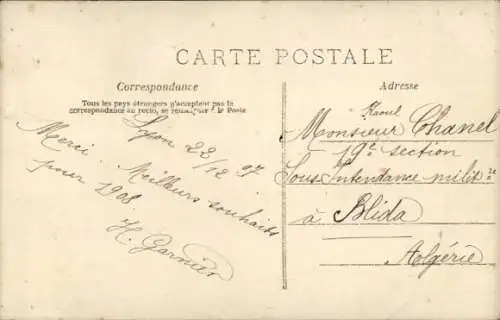 CARTE POSTALE
Correspondance
Tous les pays étrangers n'acceptent pas la
correspondance au recto, se renseigner à la Poste
Lyon 22/12 07
Merci. Meilleurs souhaits
pour 1908
H. Garnier
Adresse
Raoul
Monsieur Chanel
19e section
Sous Intendance milit re
à Blida
Algérie